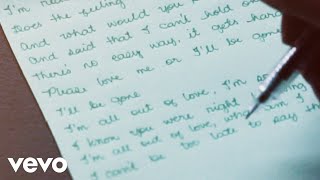 I'm
fears the feeling
And what would you
and said that I can't hold on
there's no easy way, it gets hard
Please love me or I'll be gone
I'll be gone
I'm all out of love, I'm so
I know you were right
I'm all out of love, what am I
I can't be too late to say th
vevo